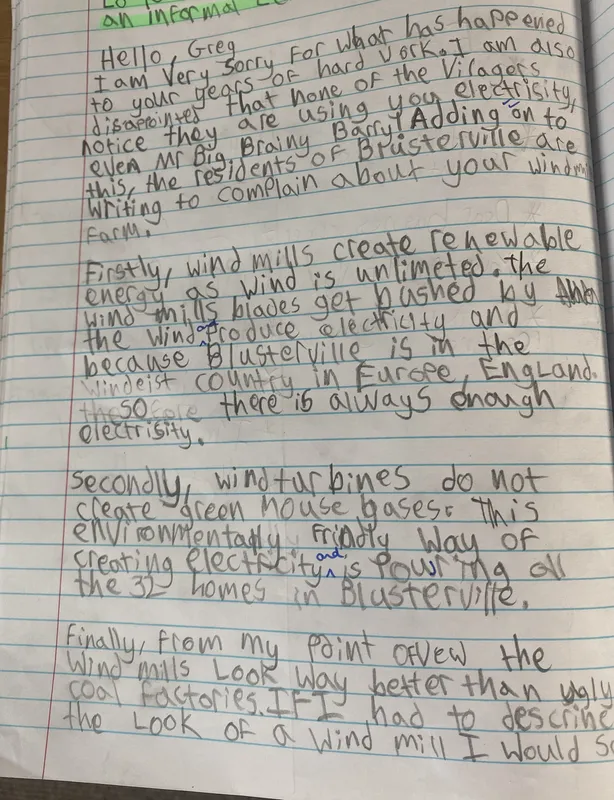 an informal
Hello, Greg
I am very sorry for what has happened
to your years of hard work. I am also
disapointed that none of the Vilagers
notice they are using you electrisity,
even Mr Big Brainy Barry! Adding on to
this, the residents of Brusterville are
writing to complain about your windmi
farm.
Firstly, wind mills create renewable
energy as wind is unlimeted. the
wind mills blades get bushed by
the wind produce electricity and
because Blusterville is in the
windeist country in Europe, England.
so there is always enough
electrisity.
Secondly, wind turbines do not
create green house gases. This
environmentaly frindly way of
creating electricity and is powring all
the 32 homes in Blusterville.
Finally, from my point of vew the
wind mills Look way better than ugly
coal factories. If I had to descrine
the Look of a wind mill I would s